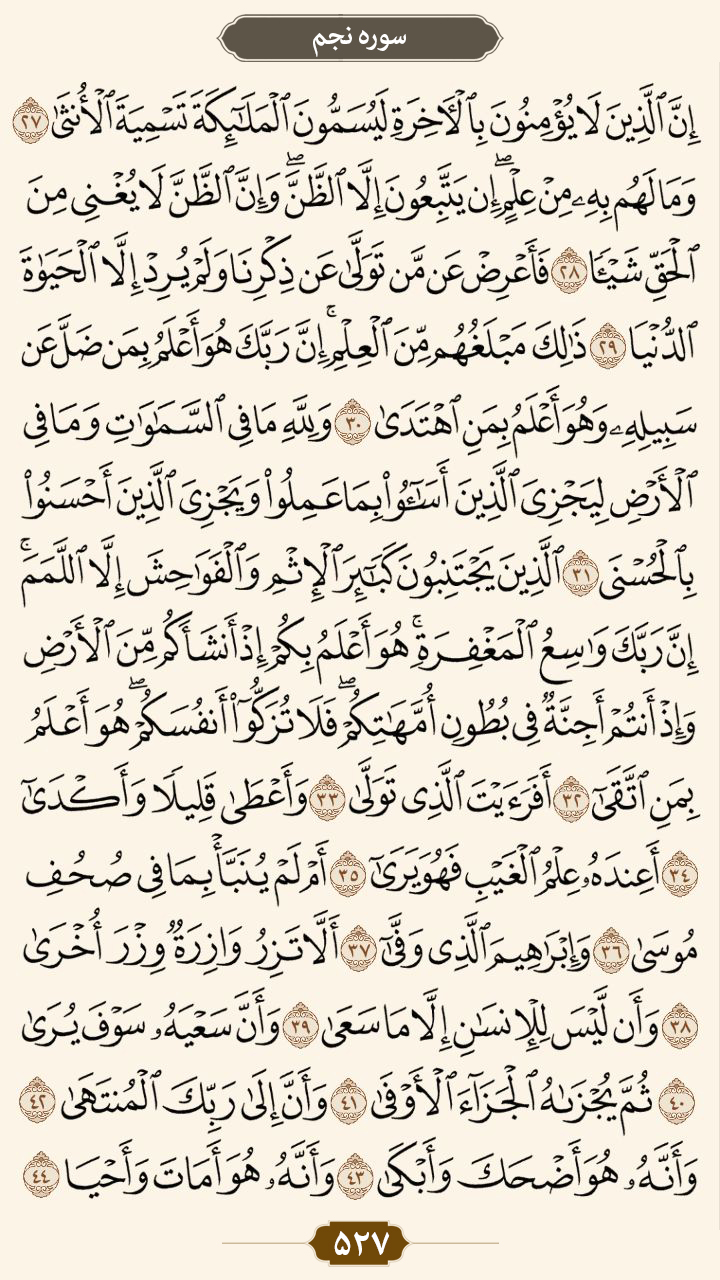 سوره نجم
إِنَّ ٱلَّذِينَ لَا يُؤْمِنُونَ بِٱلْأَخِرَةِ لَيُسَمُّونَ ٱلْمَلَٰٓئِكَةَ تَسْمِيَةَ ٱلْأُنثَىٰ ٢٧
وَمَا لَهُم بِهِۦ مِنْ عِلْمٍ ۖ إِن يَتَّبِعُونَ إِلَّا ٱلظَّنَّ ۖ وَإِنَّ ٱلظَّنَّ لَا يُغْنِى مِنَ
ٱلْحَقِّ شَيْـًٔا ٢٨ فَأَعْرِضْ عَن مَّن تَوَلَّىٰ عَن ذِكْرِنَا وَلَمْ يُرِدْ إِلَّا ٱلْحَيَوٰةَ
ٱلدُّنْيَا ٢٩ ذَٰلِكَ مَبْلَغُهُم مِّنَ ٱلْعِلْمِ ۚ إِنَّ رَبَّكَ هُوَ أَعْلَمُ بِمَن ضَلَّ عَن
سَبِيلِهِۦ وَهُوَ أَعْلَمُ بِمَنِ ٱهْتَدَىٰ ٣٠ وَلِلَّهِ مَا فِى ٱلسَّمَٰوَٰتِ وَمَا فِى
ٱلْأَرْضِ لِيَجْزِىَ ٱلَّذِينَ أَسَٰٓـُٔوا۟ بِمَا عَمِلُوا۟ وَيَجْزِىَ ٱلَّذِينَ أَحْسَنُوا۟
بِٱلْحُسْنَى ٣١ ٱلَّذِينَ يَجْتَنِبُونَ كَبَٰٓئِرَ ٱلْإِثْمِ وَٱلْفَوَٰحِشَ إِلَّا ٱللَّمَمَ ۚ
إِنَّ رَبَّكَ وَٰسِعُ ٱلْمَغْفِرَةِ ۚ هُوَ أَعْلَمُ بِكُمْ إِذْ أَنشَأَكُم مِّنَ ٱلْأَرْضِ
وَإِذْ أَنتُمْ أَجِنَّةٌ فِى بُطُونِ أُمَّهَٰتِكُمْ ۖ فَلَا تُزَكُّوٓا۟ أَنفُسَكُمْ ۖ هُوَ أَعْلَمُ
بِمَنِ ٱتَّقَىٰٓ ٣٢ أَفَرَءَيْتَ ٱلَّذِى تَوَلَّىٰ ٣٣ وَأَعْطَىٰ قَلِيلًا وَأَكْدَىٰٓ
٣٤ أَعِندَهُۥ عِلْمُ ٱلْغَيْبِ فَهُوَ يَرَىٰٓ ٣٥ أَمْ لَمْ يُنَبَّأْ بِمَا فِى صُحُفِ
مُوسَىٰ ٣٦ وَإِبْرَٰهِيمَ ٱلَّذِى وَفَّىٰٓ ٣٧ أَلَّا تَزِرُ وَازِرَةٌ وِزْرَ أُخْرَىٰ
٣٨ وَأَن لَّيْسَ لِلْإِنسَٰنِ إِلَّا مَا سَعَىٰ ٣٩ وَأَنَّ سَعْيَهُۥ سَوْفَ يُرَىٰ
٤٠ ثُمَّ يُجْزَىٰهُ ٱلْجَزَآءَ ٱلْأَوْفَىٰ ٤١ وَأَنَّ إِلَىٰ رَبِّكَ ٱلْمُنتَهَىٰ ٤٢
وَأَنَّهُۥ هُوَ أَضْحَكَ وَأَبْكَىٰ ٤٣ وَأَنَّهُۥ هُوَ أَمَاتَ وَأَحْيَا ٤٤
۵۲۷